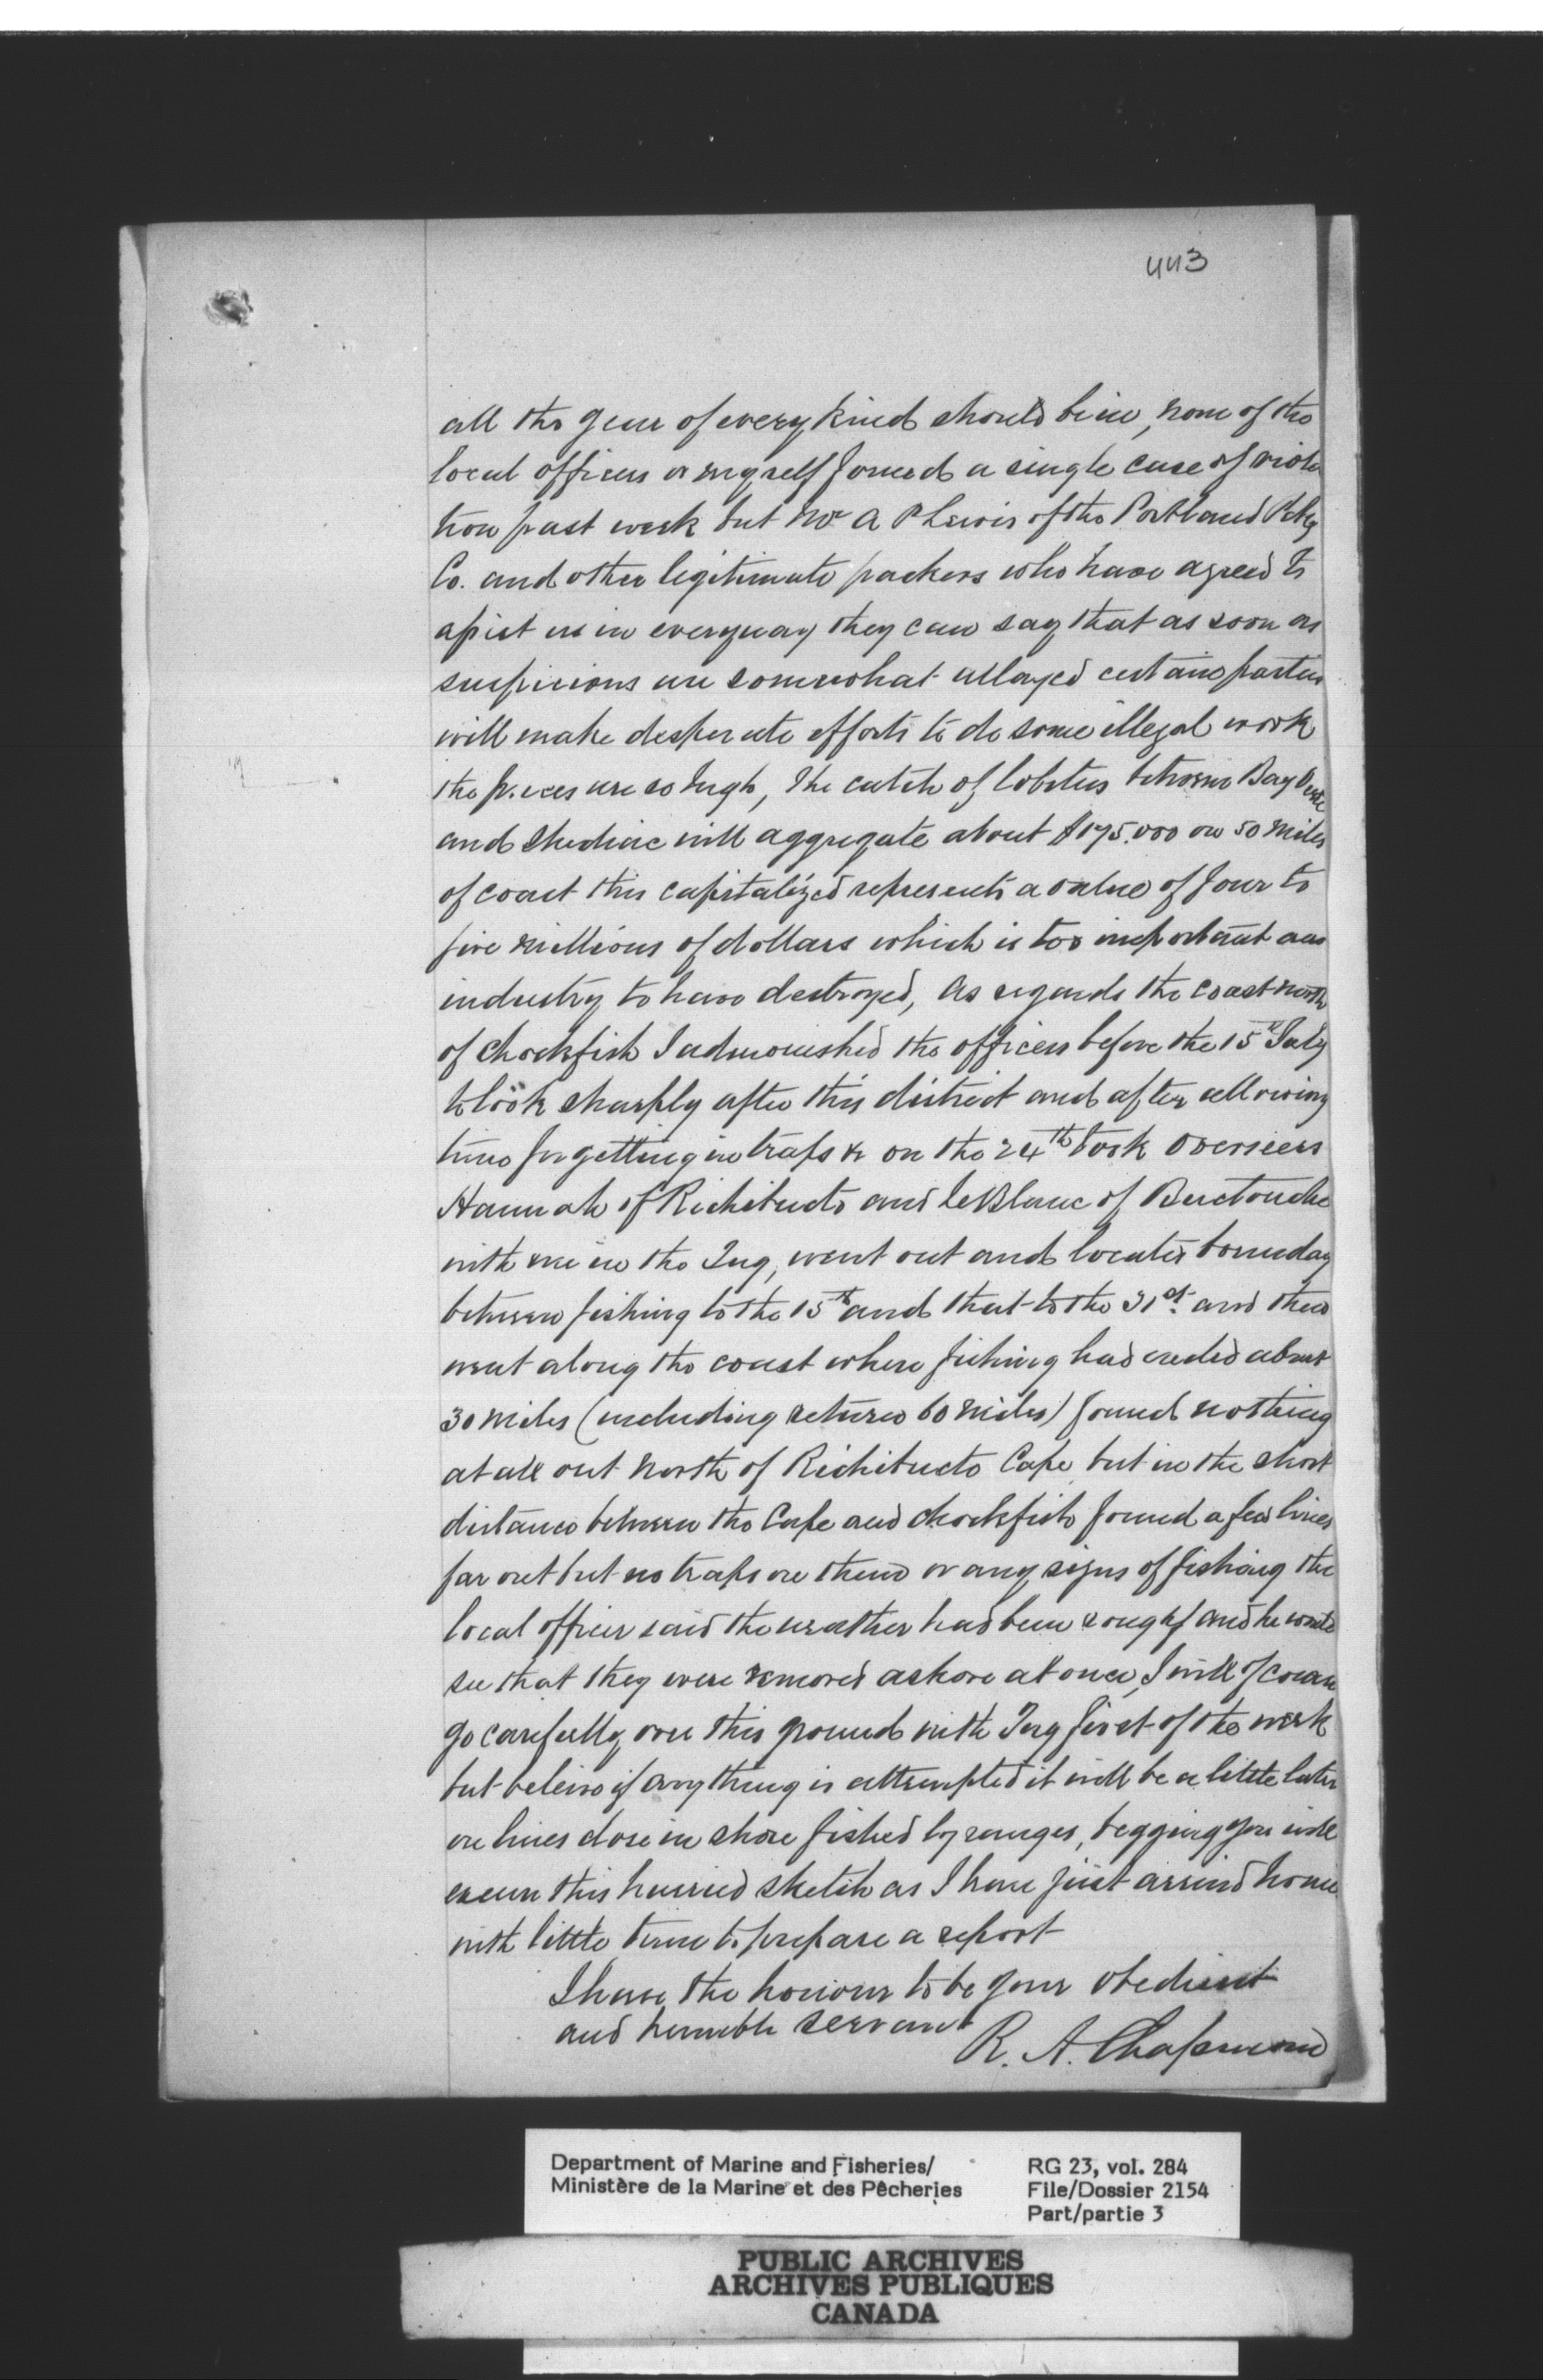 443
all the gear of every kind should be in, none of the
local officers or myself found a single case of viola
tion past week but Mr A P Lewis of the Portland Pckg
Co. and other legitimate packers who have agreed to
assist us in everyway they can say that as soon as
suspicions are somewhat allayed certain parties
will make desperate efforts to do some illegal work
the prices are so high, The catch of lobsters between Bay Verte
and Shediac will aggregate about $175.000 on 50 miles
of coast this capitalized represents a value of four to
five millions of dollars which is too important an
industry to have destroyed, As regards the coast north
of Chockfish I admonished the officers before the 15th July
to look sharply after this district and after allowing
time for getting in traps &c on the 24th took Overseers
Hannah of Richibucto and LeBlanc of Buctouche
with me in the Tug, went out and located boundary
between fishing to the 15th and that to the 31st. and then
went along the coast where fishing had ended about
30 miles (including return 60 miles) found nothing
at all out North of Richibucto Cape but in the short
distance between the Cape and Chockfish found a few lines
far out but no traps on them or any signs of fishing the
local officer said the weather had been rough and he would
see that they were removed ashore at once, I will of course
go carefully over this ground with Tug first of the week
but beleive if anything is attempted it will be a little later
on lines close in shore fished by ranges, begging you will
excuse this hurried sketch as I have just arrived home
with little time to prepare a report
I have the honour to be your obedient
and humble servant
R. A. Chapman
Department of Marine and Fisheries/
Ministère de la Marine et des Pêcheries
RG 23, vol. 284
File/Dossier 2154
Part/partie 3
PUBLIC ARCHIVES
ARCHIVES PUBLIQUES
CANADA